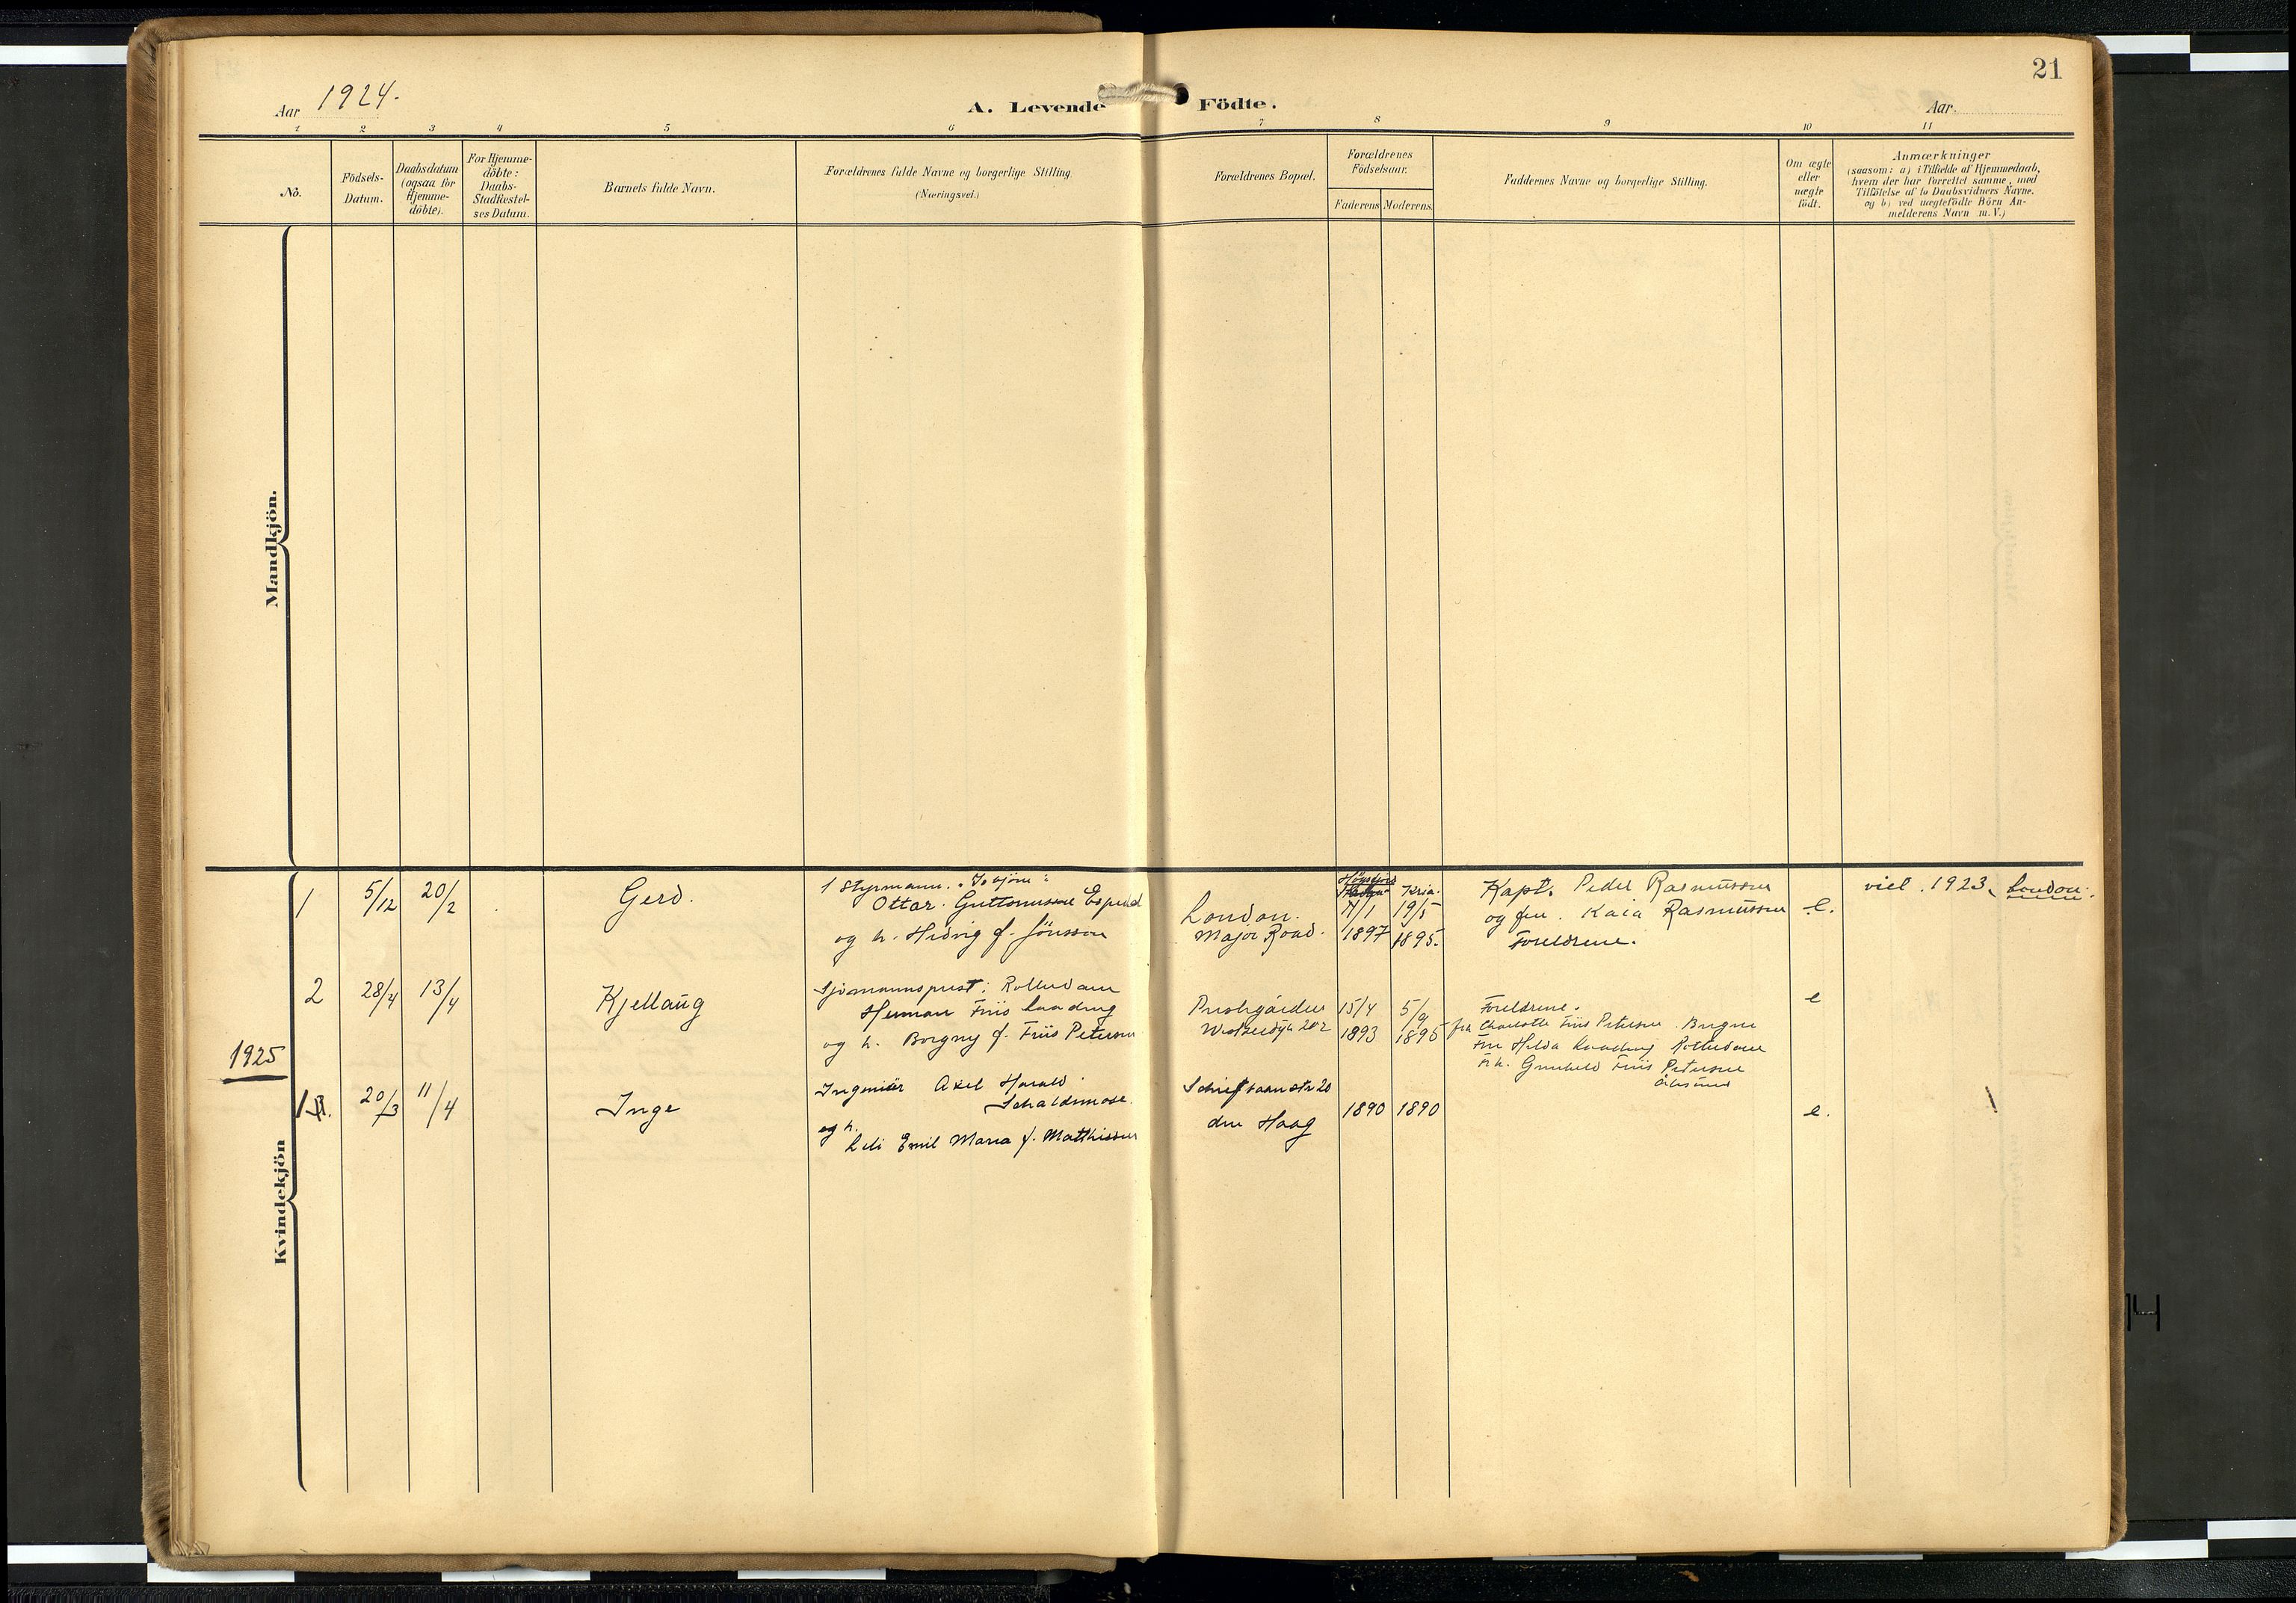 21
Aar 1924.
A. Levende Födte.
Aar
1 2 3 4 5 6 7 8 9 10 11
No.
Födsels-
Datum.
Daabsdatum
(ogsaa for
Hjemme-
döbte).
For Hjemme-
döbte:
Daabs-
Stadfæstel-
ses Datum.
Barnets fulde Navn.
Forældrenes fulde Navne og borgerlige Stilling
(Næringsvei.)
Forældrenes Bopæl.
Forældrenes
Födselsaar.
Faderens Moderens.
Faddernes Navne og borgerlige Stilling.
Om ægte
eller
uægte
födt.
Anmærkninger
(saasom: a) i Tilfælde af Hjemmedaab,
hvem der har forrettet samme, med
Tilföielse af to Daabsvidners Navne.
og b) ved uægtefödte Börn An-
melderens Navn m. V.)
Mandkjön.
Kvindekjön
1
5/12
20/2
Gerd.
1 Styrmann.
Ottar
og h. Hedvig f. Jönsson
London.
Major Road.
1/1
1897
Kria.
19/5
1895.
Kapt. Peder Rasmussen
og fru. Kaia Rasmussen
Foreldrene.
e.
viet. 1923, London.
2
28/4
13/4
Kjellaug
Sjömannsprest: Rotterdam
Herman Friis
og h. Borgny f. Friis Petersen
Prestegården
Westzeedijk 202
15/4
1893
5/9
1895
Foreldrene.
frk Charlotte Friis Petersen. Bergen
Fru Hilda Rotterdam
Frk. Gunhild Friis Petersen
Ålesund
e
1925
1
20/3
11/4
Inge
Ingeniör Axel Harald
Schaldemose.
og h.
Lili Emil Maria f. Matthissen
20
den Haag
1890
1890
e.